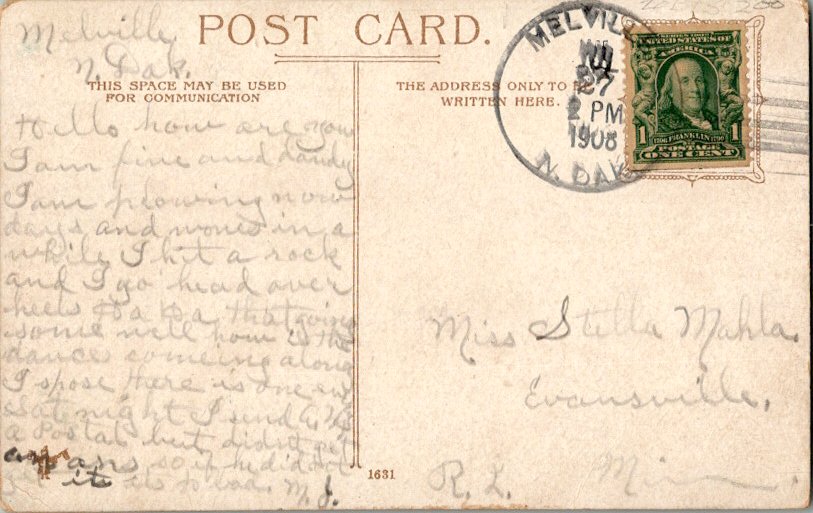 POST CARD.
Melville
N. Dak.
THIS SPACE MAY BE USED
FOR COMMUNICATION
THE ADDRESS ONLY TO BE
WRITTEN HERE.
MELVILLE
JUL
27
2 PM
1908
N. DAK.
SERIES 1902
UNITED STATES OF
AMERICA
1 1706 FRANKLIN 1790 1
POSTAGE
ONE CENT
Hello how are you
I am fine and dandy
I am plowing now
days and wonce in a
while I hit a rock
and I go head over
heels Ha Ha that going
some well how is the
dances someing along
I spose there is one evry
Sate night I send
a Postal but didnt get
an ans, so if he did not
get it its to bad. M. J.
Miss Stella Mahla.
Evansville,
R. 2. Minn.
1631